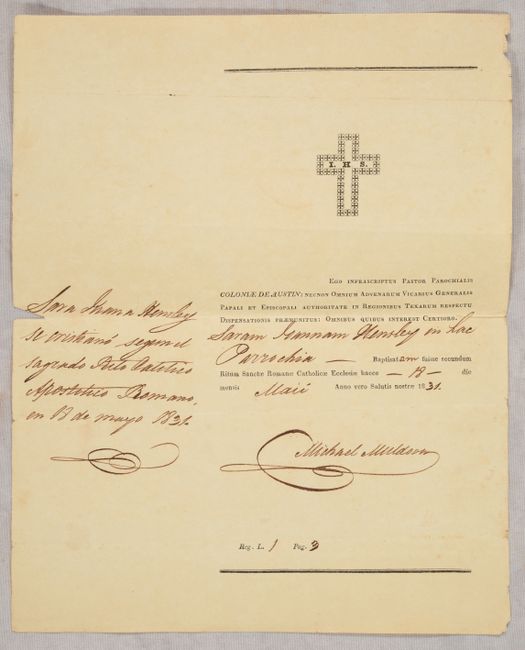 I. H. S.
EGO INFRASCRIPTUS PASTOR PAROCHIALIS
COLONIÆ DE AUSTIN; NECNON OMNIUM ADVENARUM VICARIUS GENERALIS
PAPALI ET EPISCOPALI AUTHORITATE IN REGIONIBUS TEXARUM RESPECTU
DISPENSATIONIS PRÆMUNITUS: OMNIBUS QUIBUS INTEREST CERTIORO.
Saram Juannam Hensley en hac
Parrochia — Baptisatam fuisse secundum
Ritum Sanctæ Romanæ Catholicæ Ecclesiæ hacce — 18 — die
mensis Maii Anno vero Salutis nostre 1831.
Michael Muldoon
Reg. L. 1 Pag. 3
Sara Juana Hensley
se cristianó segun el
sagrado Rito Catolico
Apostolico Romano,
en 18 de mayo 1831.